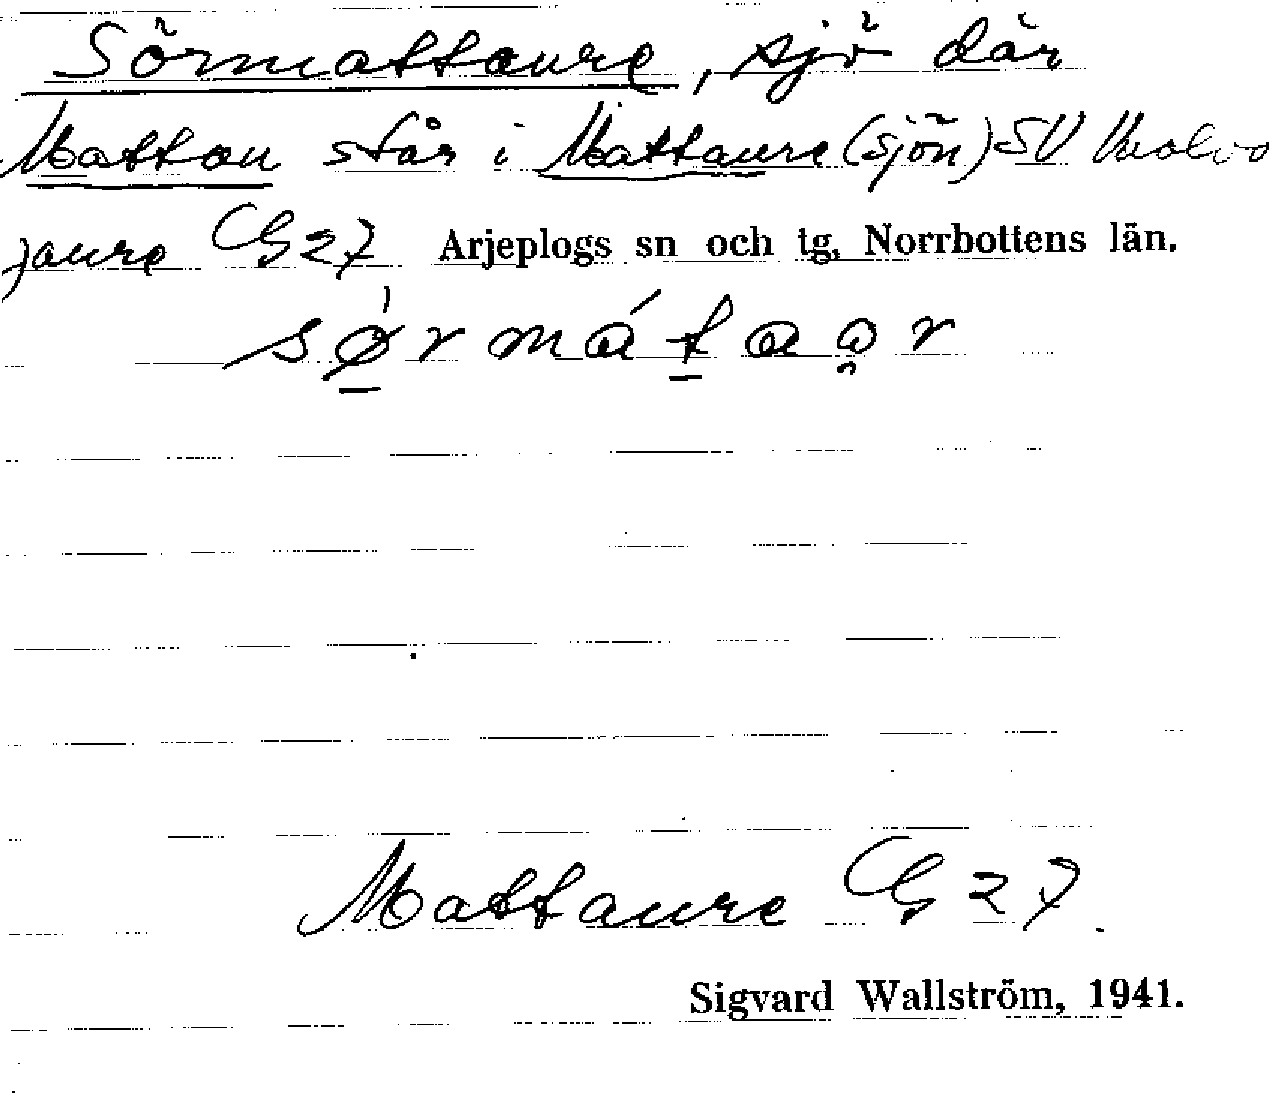 Sörmattaure, sjö där
Mattau står i Mattaure (sjön) SV
jaure G 27 Arjeplogs sn och tg, Norrbottens län.
Mattaure G 27.
Sigvard Wallström, 1941.